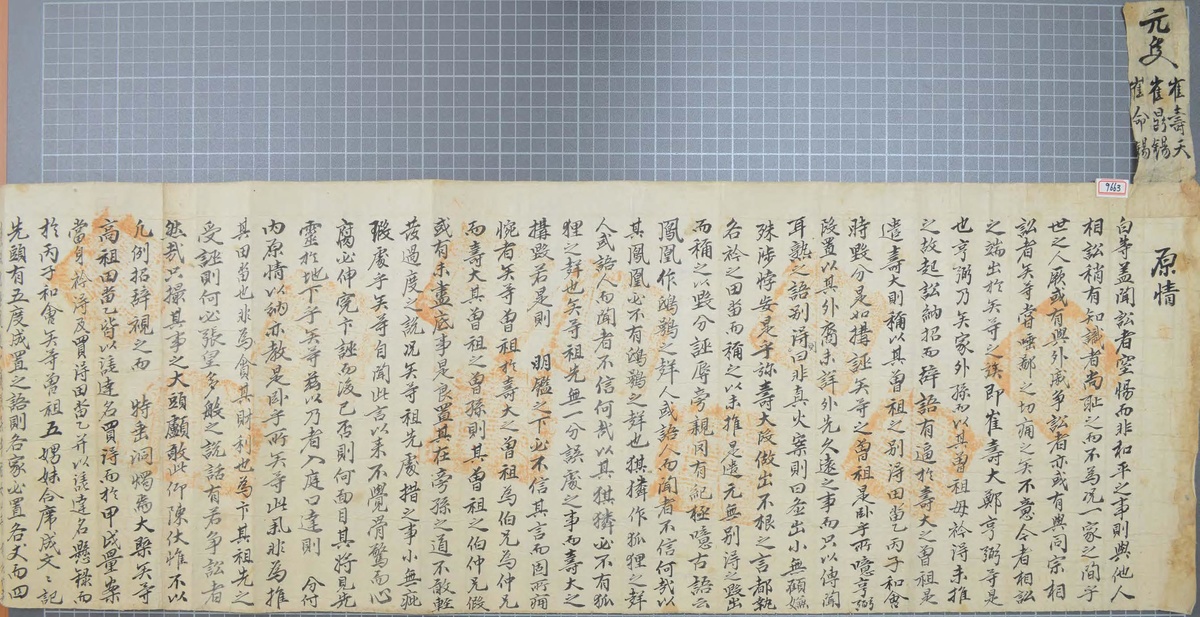 元隻
崔壽天
崔昌錫
崔命錫
9663
原情
白等盖聞訟者空惕而非和平之事則與他人
相訟稍有知識者尚耻之而不爲况一家之間乎
世之人厥或有與外戚爭訟者亦或有與同宗相
訟者矣等嘗唾鄙之切痛之矣不意今者相訟
之端出於矣等之
即崔壽大鄭亨弼等是
也亨弼乃矣家外孫而以其曾祖母衿得未推
之故起訟納招而辭語有逼於壽大之曾祖是
遣壽大則稱以其曾祖之別得田畓乙丙子和會
時毁分是如搆誣矣等之曾祖是卧乎所噫亨弼
段置以其外裔未詳外先久遠之事而只以傳聞
耳熟之語別得曰非眞火案則曰虛出小無顧嫌
殊涉悖妄是乎旀壽大段做出不根之言都執
各衿之田畓而稱之以未推是遣元無別得之毁出
而稱之以毁分誣辱旁親罔有紀極噫古語云
鳳凰作鴟鵂之群人或語人而聞者不信何哉以
其鳳凰必不有鴟鵂之群也猉獜作狐狸之群
人或語人而聞者不信何哉以其猉獜必不有狐
狸之群也矣等祖先無一分誤處之事而壽大之
搆毁若是則 明鑑之下必不信其言而固所痛
惋者矣等曾祖於壽大之曾祖爲伯兄爲仲兄
而壽大其曾祖之曾孫則其曾祖之伯仲兄假
或有未盡底事是良置其在旁孫之道不敢輕
發過度之說况矣等祖先處措之事小無疵
瑕處乎矣等自聞此言以來不覺骨驚而心
腐必伸寃卞誣而後已否則何面目其將見先
靈於地下乎矣等茲以乃者入庭口達則 分付
內原情以納亦教是卧乎所矣等此訟非爲推
其田畓也非爲貪其財利也爲卞其祖先之
受誣則何必張皇多般之說話有若爭訟者
然哉只撮其事之大頭顱敢此仰陳伏惟不以
凡例招辭視之而 特垂洞燭焉大槩矣等
高祖田畓乙皆以達名買得而於甲戌量案
當身衿得及買得田畓乙并以達名懸錄而
於丙子和會矣等曾祖五娚妹合席成文之記
先頭有五度成置之語則各家必置各文而四